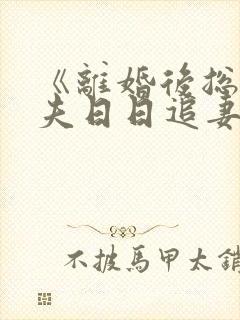 《離婚後總
夫日日追妻
不披馬甲太銷